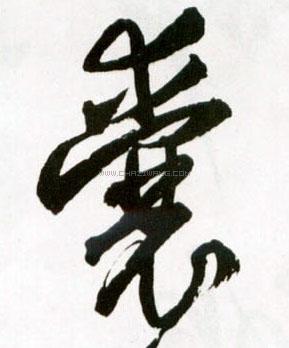 囊
WWW.CHAZIWANG.COM